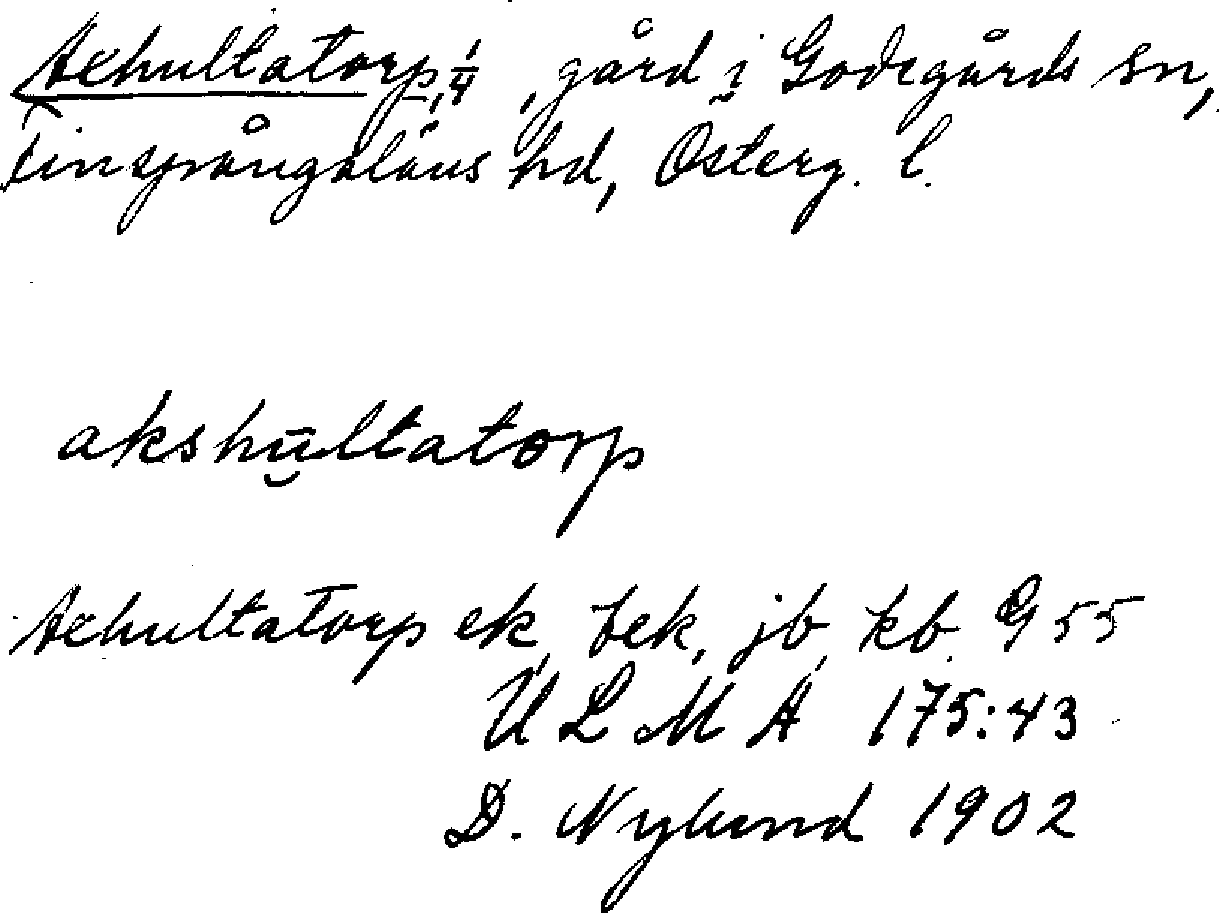 Axhultatorp, 1/4, gård i Godegårds sn,
Finspångaläns hd, Österg. l.
akshultatorp
Axhultatorp ek, bek, jb, kb. G 55
ULMA 175:43
D. Nylund 1902